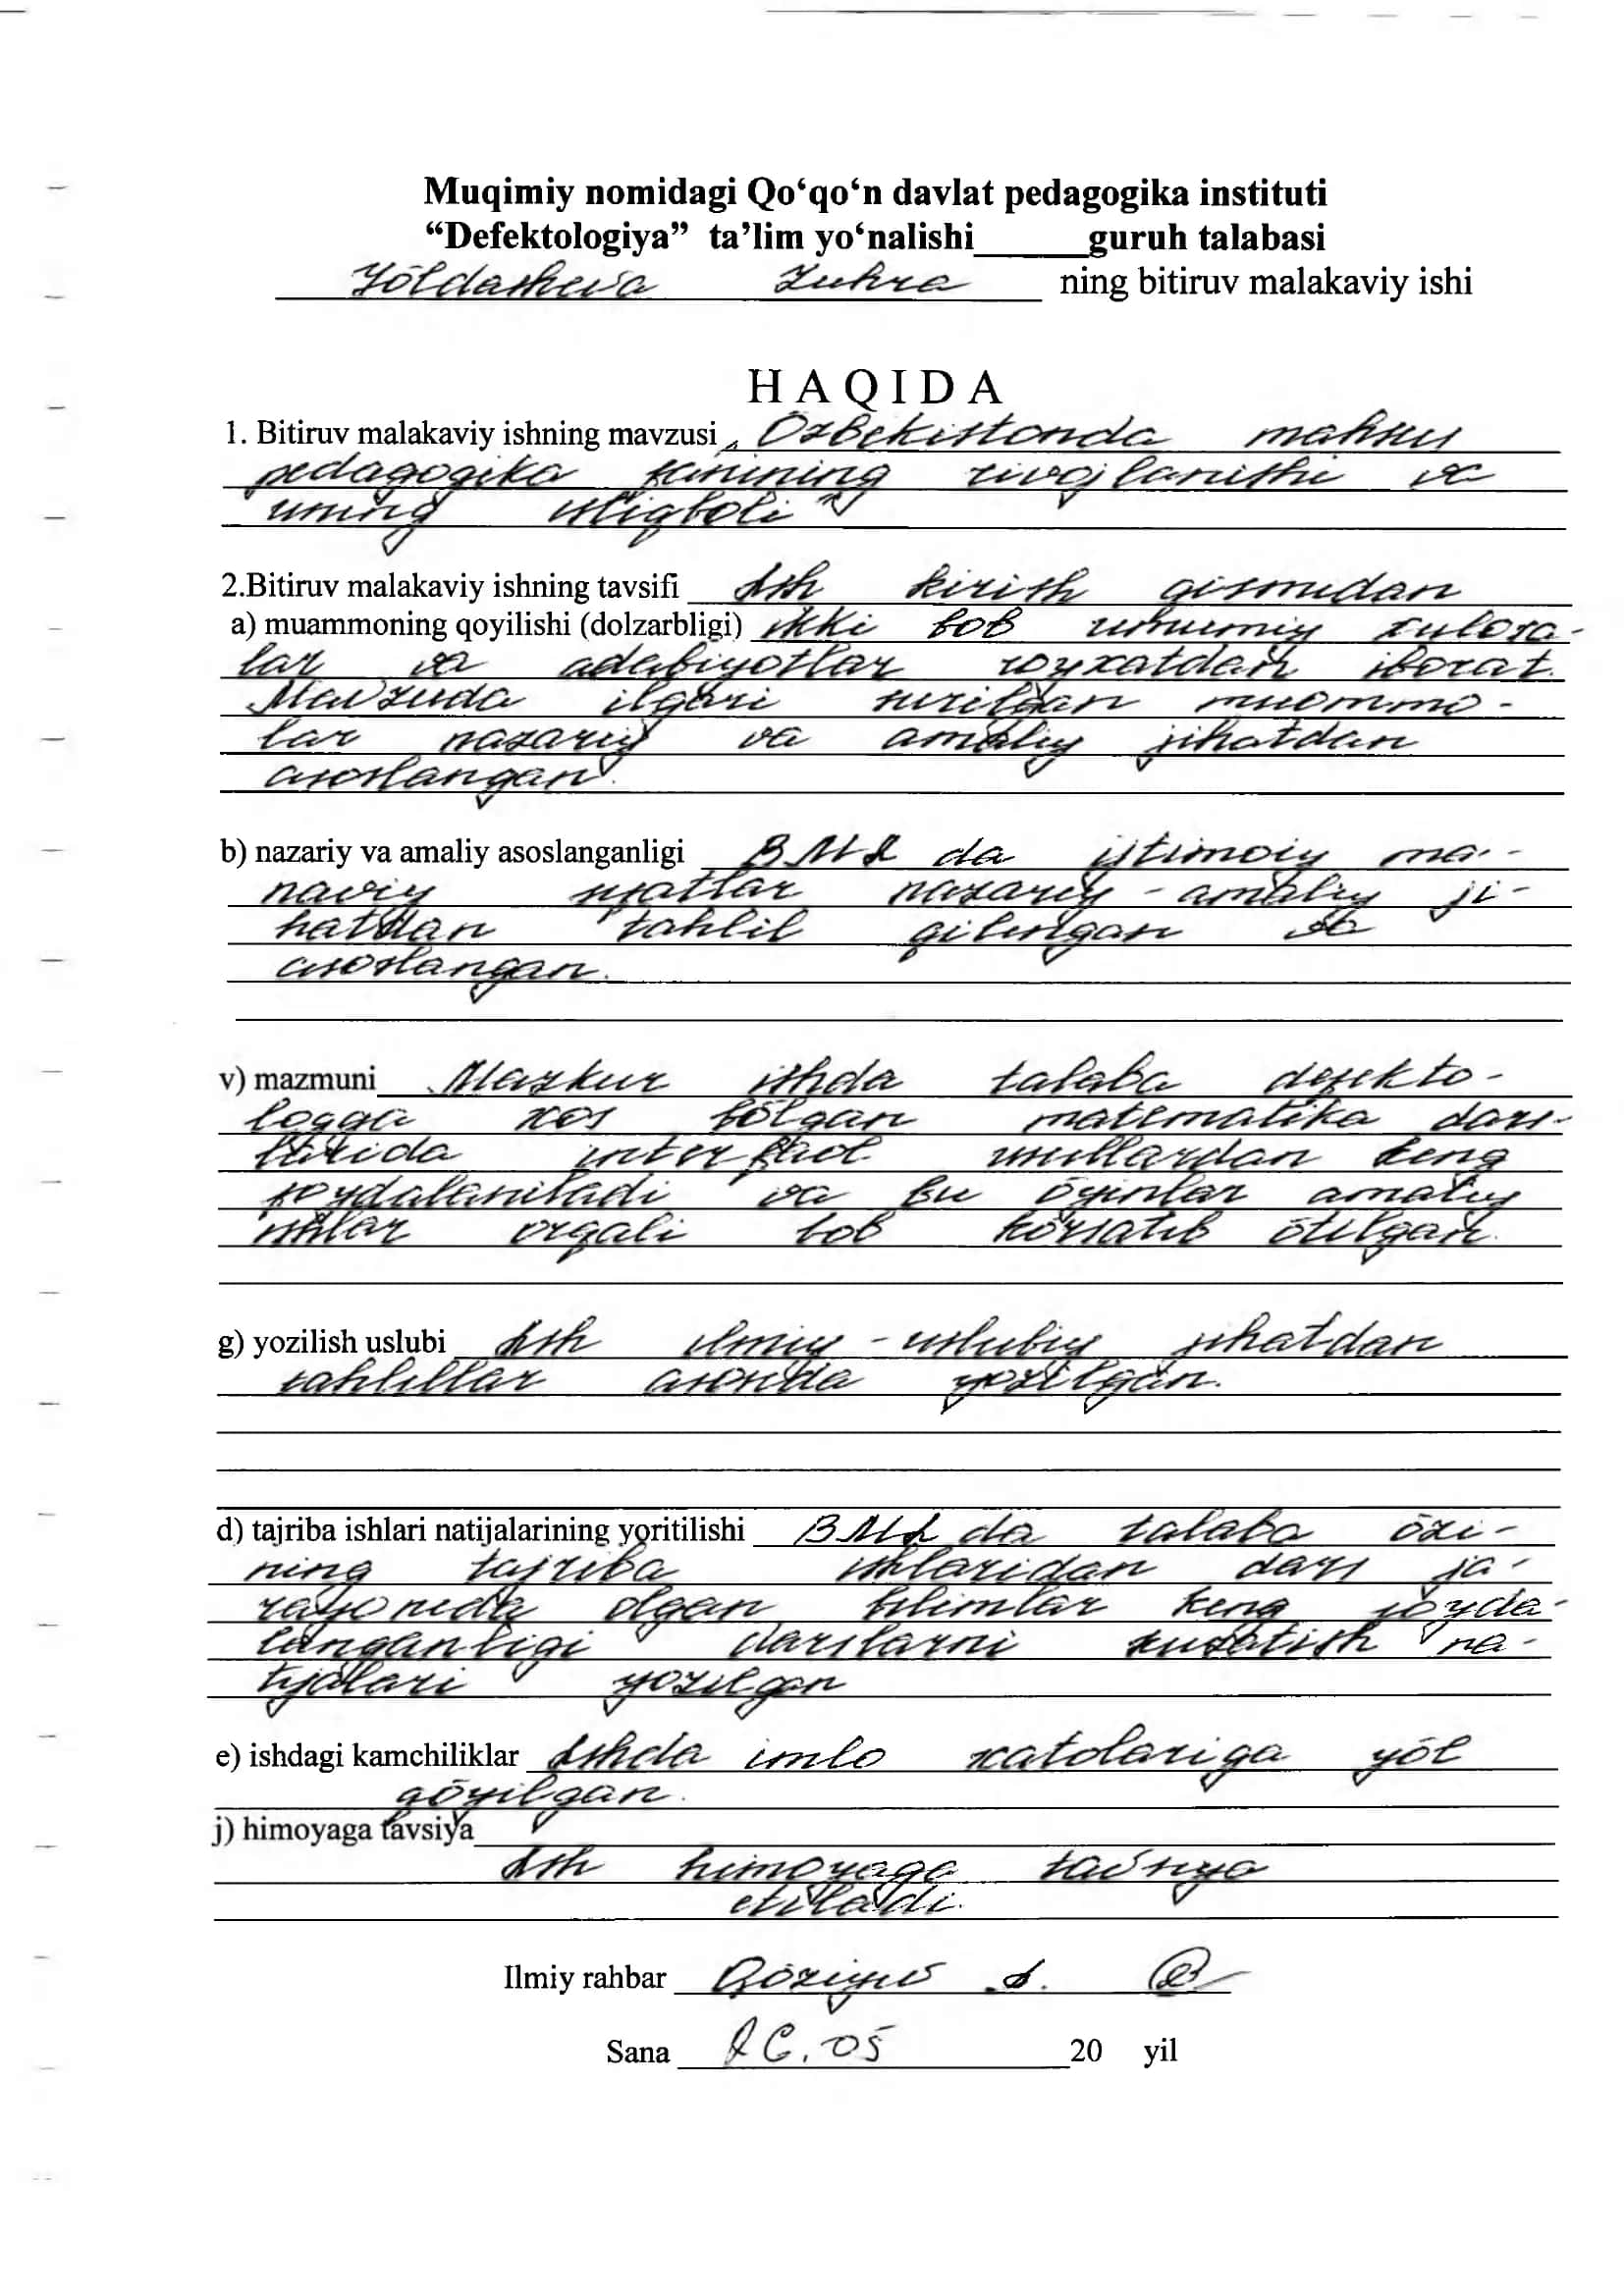 Muqimiy nomidagi Qo‘qo‘n davlat pedagogika instituti
“Defektologiya” ta’lim yo‘nalishi______guruh talabasi
Yōldasheva Zuhra ning bitiruv malakaviy ishi
HAQIDA
1. Bitiruv malakaviy ishning mavzusi „Ōzbekistonda mahsus
pedagogika fanining rivojlanishi va
uning istiqboli"
2.Bitiruv malakaviy ishning tavsifi Ish kirish qismidan
a) muammoning qoyilishi (dolzarbligi) ikki bob umumiy xulosa-
lar va adabiyotlar royxatdan iborat.
Mavzuda ilgari surilgan muommo-
lar nazariy va amaliy jihatdan
asoslangan.
b) nazariy va amaliy asoslanganligi BMI da ijtimoiy ma'-
naviy nazariy-amaliy ji-
hatdan tahlil qilingan va
asoslangan.
v) mazmuni Mazkur ishda talaba defekto-
logga xos bōlgan matematika dars-
usullardan keng
foydalaniladi va bu ōyinlar amaliy
ishlar orqali bob kōrsatib ōtilgan.
g) yozilish uslubi Ish ilmiy-uslubiy jihatdan
tahlillar asosida yozilgan.
d) tajriba ishlari natijalarining yoritilishi BMI da talaba ōzi-
ning tajriba ishlaridan dars ja-
rayonida olgan bilimlar keng foyda-
langanligi darslarni kuzatish na-
tijalari yozilgan
e) ishdagi kamchiliklar Ishda imlo xatolariga yōl
qōyilgan.
j) himoyaga tavsiya
Ish himoyaga tavsiya
etiladi.
Ilmiy rahbar
Sana 26.05 20 yil